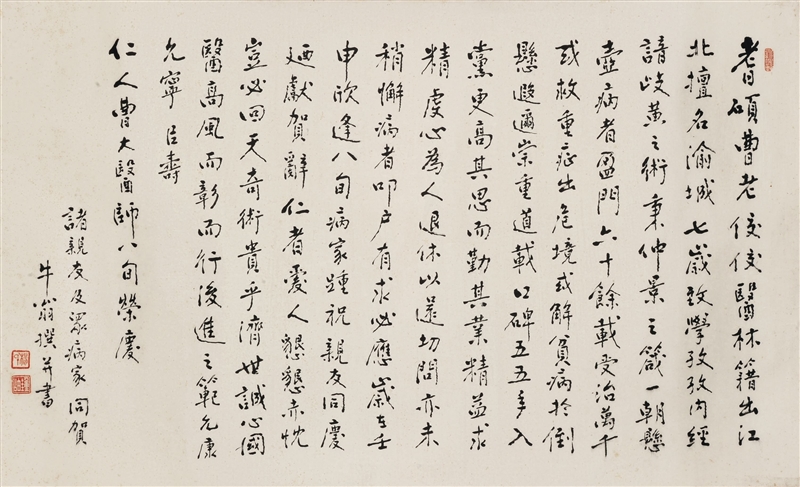 耆碩曹老佼佼醫林籍出江
北擅名渝城七歲致學孜孜內經
諳歧黃之術秉仲景之箴一朝懸
壺病者盈門六十餘載受治萬千
或救重症出危境或解貧病於倒
懸遐邇崇重道載口碑五五年入
黨更高其思而勤其業精益求
精虔心為人退休以還切問亦未
稍懈病者叩戶有求必應歲在壬
申欣逢八旬病家踵祝親友同慶
廼獻賀辭仁者愛人懇懇赤忱
豈必回天奇術貴乎濟世誠心國
醫高風而彰而行後進之範允康
允寧臣壽
仁人曹大醫師八旬榮慶
諸親友及眾病家同賀
牛翁撰并書